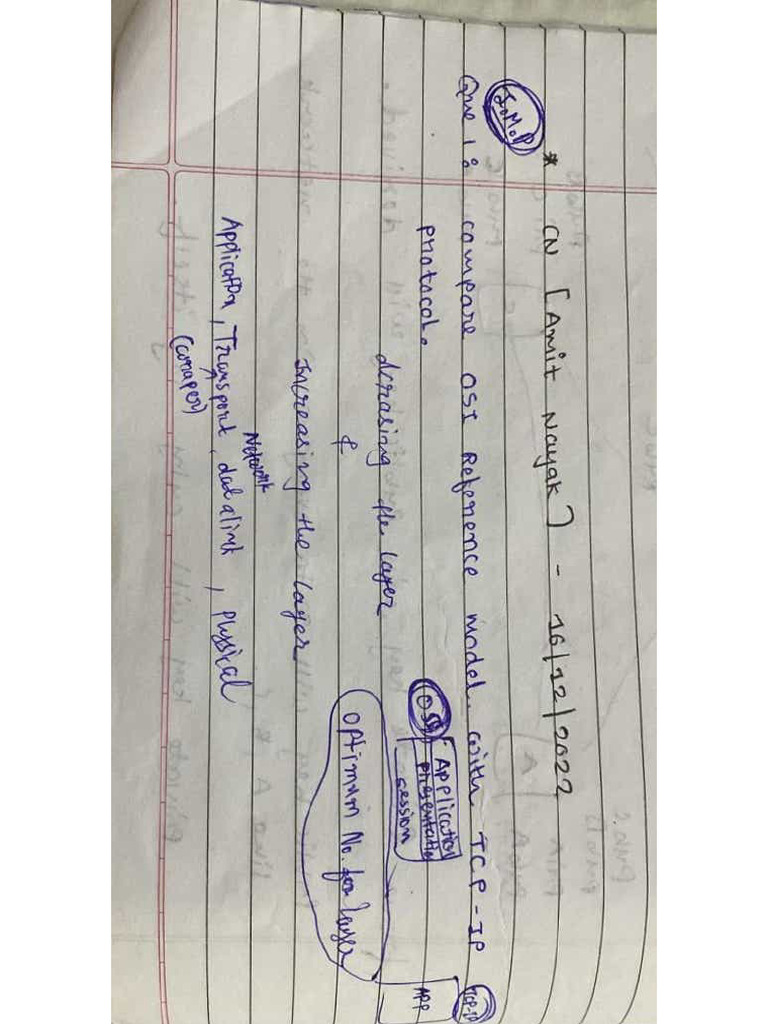 * CN [Amit Nayak] - 16/12/2022
I.M.P
Que 1: compare OSI Reference model with TCP-IP
protocol.
TCP-IP
OSI
Application
presentatio
session
APP
decrasing the layer
&
Increasing the layer
optimum No. for layer
Network
Application, Transport, datalink, physical